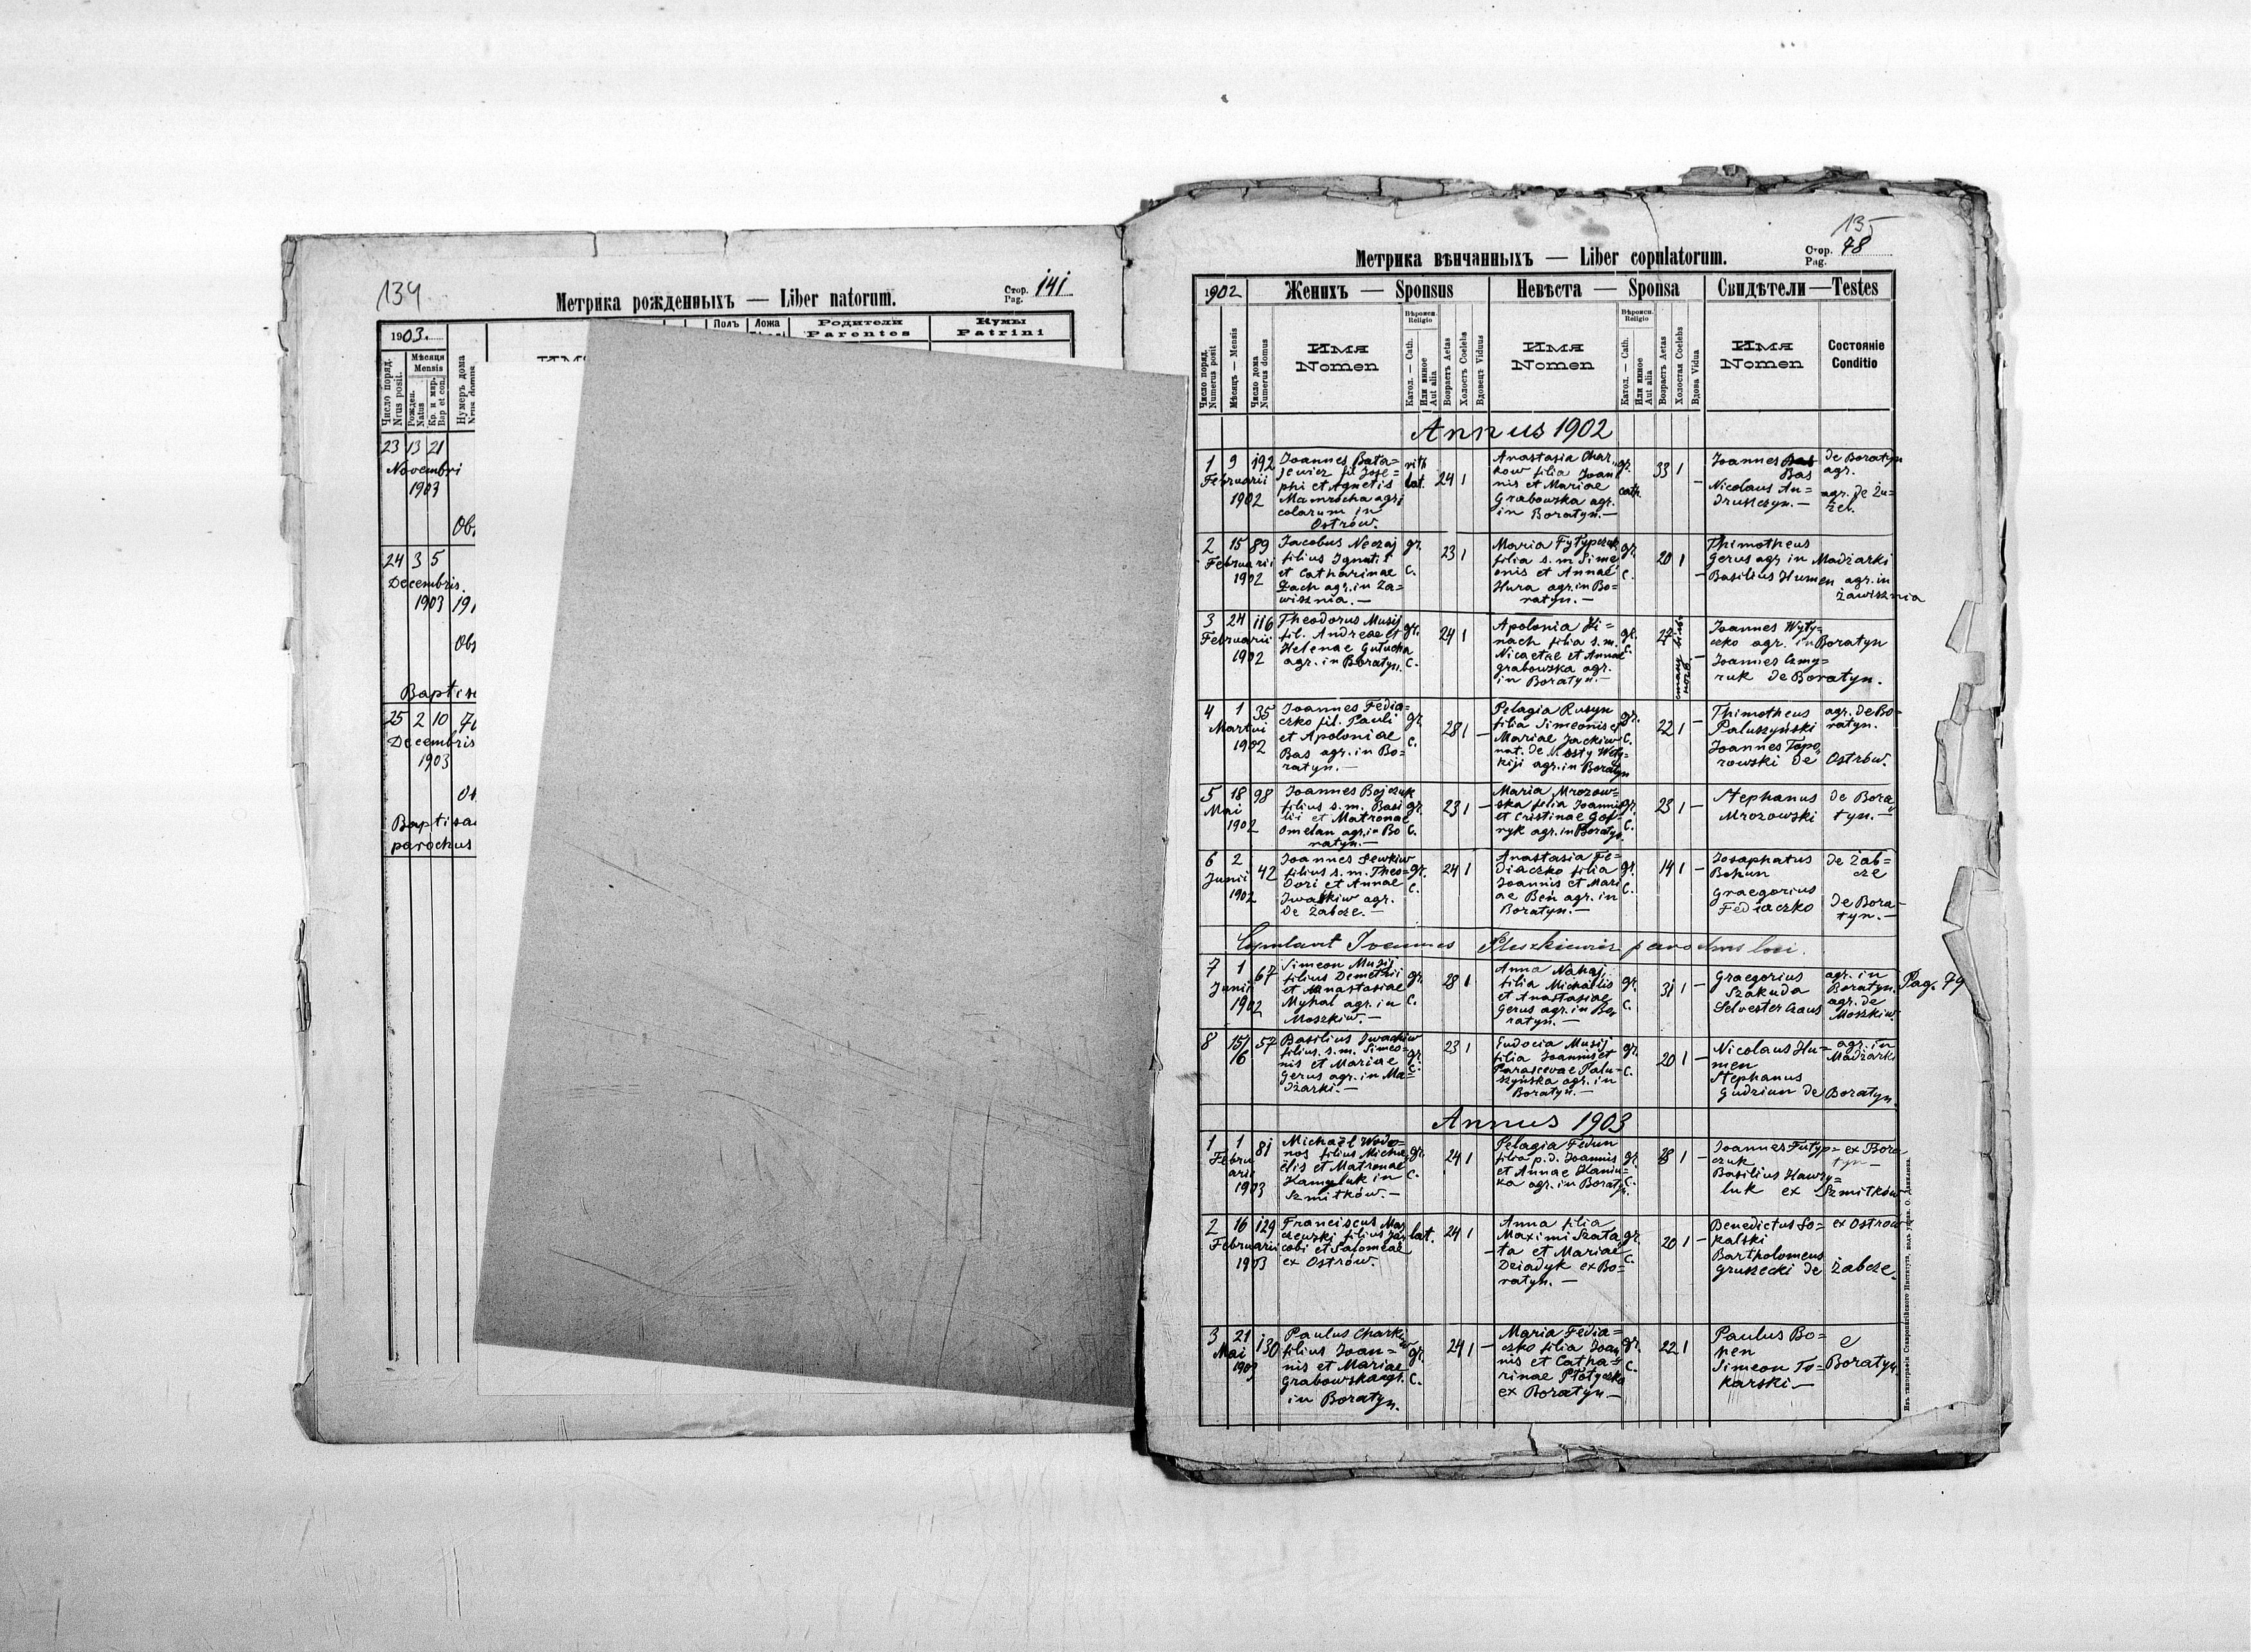 134
Метрика рожденныхъ — Liber natorum.
Стор. Pag. 141
1903.
Полъ
Ложа
Родители
Parentes
Кумы
Patrini
Число поряд.
Nrus posit.
Мѣсяця
Mensis
Рожден.
Natus
Кр. и мвр.
Bap et con.
Нумеръ дома
23 13 21
Novembri
1903
Ob.
24 3 5
Decembris.
1903 191
Obs
25 2 10
Decembris
1903
parochus
135
Метрика вѣнчанныхъ — Liber copulatorum.
Стор. Pag. 78
1902
Женихъ — Sponsus
Невѣста — Sponsa
Свидѣтели — Testes
Число поряд.
Numerus posit
Мѣсяцъ — Mensis
Число дома
Numerus domus
Имя
Nomen
Вѣроисп.
Religio
Катол. — Cath.
Или иное
Aut alia
Возрастъ Aetas
Холостъ Coelebs
Вдовецъ Viduus
Имя
Nomen
Вѣроисп.
Religio
Катол. — Cath.
Или иное
Aut alia
Возрастъ Aetas
Холостая Coelebs
Вдова Vidua
Имя
Nomen
Состояніе
Conditio
Annus 1902
1 9 192
Februarii
1902
Joannes Bata=
jewicz fil. Jose=
phi et Agnetis
Mamrocha agri
colarum in
Ostrów.
rith
lat.
24 1
Anastasia Char
kow filia Joan
nis et Mariae
Grabowska agr.
in Boratyn.—
gr.
cath
33 1 —
Joannes
Bas
Nicolaus An=
druszczyn.—
de Boratyn
agr.
agr. de Żu=
żel.
2 15 89
Februarii
1902
Jacobus Neczaj
filius Ignatii
et Catharinae
Zach agr. in Za=
wisznia.—
gr.
c.
23 1
Maria Fytypczuk
filia s. m. Sime
onis et Annae
Hura agr. in Bo=
ratyn.—
gr.
c.
20 1 —
Thimotheus
Gerus agr in Madżarki
Basilius Humen agr. in
Zawisznia
3 24 116
Februarii
1902
Theodorus Musij
fil. Andreae et
Helenae Gutucha
agr. in Boratyn.
gr.
c.
24 1
Apolonia Hi=
nach filia s. m.
Nicaetae et Annae
Grabowska agr.
in Boratyn.—
gr.
c.
27
Joannes Wyty=
czko agr. in Boratyn
Joannes Czmy=
ruk de Boratyn.
4 1 35
Martii
1902
Joannes Fedia=
czko fil. Pauli
et Apoloniae
Bas agr. in Bo=
ratyn.—
gr.
c.
28 1 —
Pelagia Rusyn
filia Simeonis et
Mariae Jackiw
nat. de Mosty Wely=
kiji agr. in Boratyn
gr.
c.
22 1 —
Thimotheus
Paluszyński
Joannes Topo
rowski de
agr. de Bo=
ratyn.
Ostrów.
5 18 98
Mai
1902
Joannes Bojczuk
filius s. m. Basi
lii et Matronae
Omelan agr. in Bo
ratyn.—
gr.
c.
23 1 —
Maria Mrozow=
ska filia Joannis
et Cristinae Gaf=
ryk agr. in Boratyn.
gr.
c.
23 1 —
Stephanus
Mrozowski
de Bora
tyn.—
6 2 42
Junii
1902
Joannes Sewkiw
filius s. m. Theo=
dori et Annae
Iwaśkiw agr.
de Żabcze.—
gr.
c.
24 1
Anastasia Fe=
diaczko filia
Joannis et Mari
ae Beń agr. in
Boratyn.—
gr.
c.
14 1 —
Josaphatus
Bohun
Graegorius
Fediaczko
de Żab=
cze
de Bora=
tyn.—
Copulavit Joannes Pleszkiewicz parochus loci.
7 1 67
Junii
1902
Simeon Musij
filius Demetrii
et Anastasiae
Myhal agr. in
Moszkiw.—
gr.
c.
28 1
Anna Nahaj
filia Michaelis
et Anastasiae
Gerus agr. in Bo
ratyn.—
gr.
c.
31 1 —
Graegorius
Szakuda
Selvester Czaus
agr. in
Boratyn.
agr. de
Moszkiw.
Pag. 79
8 15/6 57
Basilius Iwachiw
filius. s. m. Simeo=
nis et Mariae
Gerus agr. in Ma=
dżarki.—
gr.
c.
23 1
Eudocia Musij
filia Joannis et
Parascevae Palu=
szyńska agr. in
Boratyn.—
gr.
c.
20 1 —
Nicolaus Hu=
men
Stephanus
Gudzian de Boratyn.
agr. in
Madżarki
Annus 1903
1 1 81
Februarii
1903
Michaël Wodo=
nos filius Micha
ëlis et Matronae
Hamyluk in
Szmitków.—
gr.
c.
24 1
Pelagia Fedun
filia p. d. Joannis
et Annae Kaniu=
ka agr. in Boratyn.
gr.
c.
28 1 —
Joannes Futyp=
czuk
Basilius Hawry=
luk ex Szmitków
ex Bora
tyn—
2 16 129
Februarii
1903
Franciscus Mar
filius Ja
cobi et Salomeae
ex Ostrów.
lat.
24 1
Anna filia
Maximi Szata
ta et Mariae
Dziadyk ex Bo=
ratyn.—
gr.
c.
20 1 —
Benedictus So=
kalski
Bartholomeus
Gruszecki de Żabcze.
ex Ostrow
3 21 130
Mai
1903
Paulus Charkiw
filius Joan=
nis et Mariae
Grabowska agr.
in Boratyn.
gr.
c.
24 1 —
Maria Fedia=
czko filia Joan
nis et Catha=
rinae
ex Boratyn—
gr.
c.
22 1
Paulus Bo=
hen
Simeon To=
karski—
e
Boratyn.